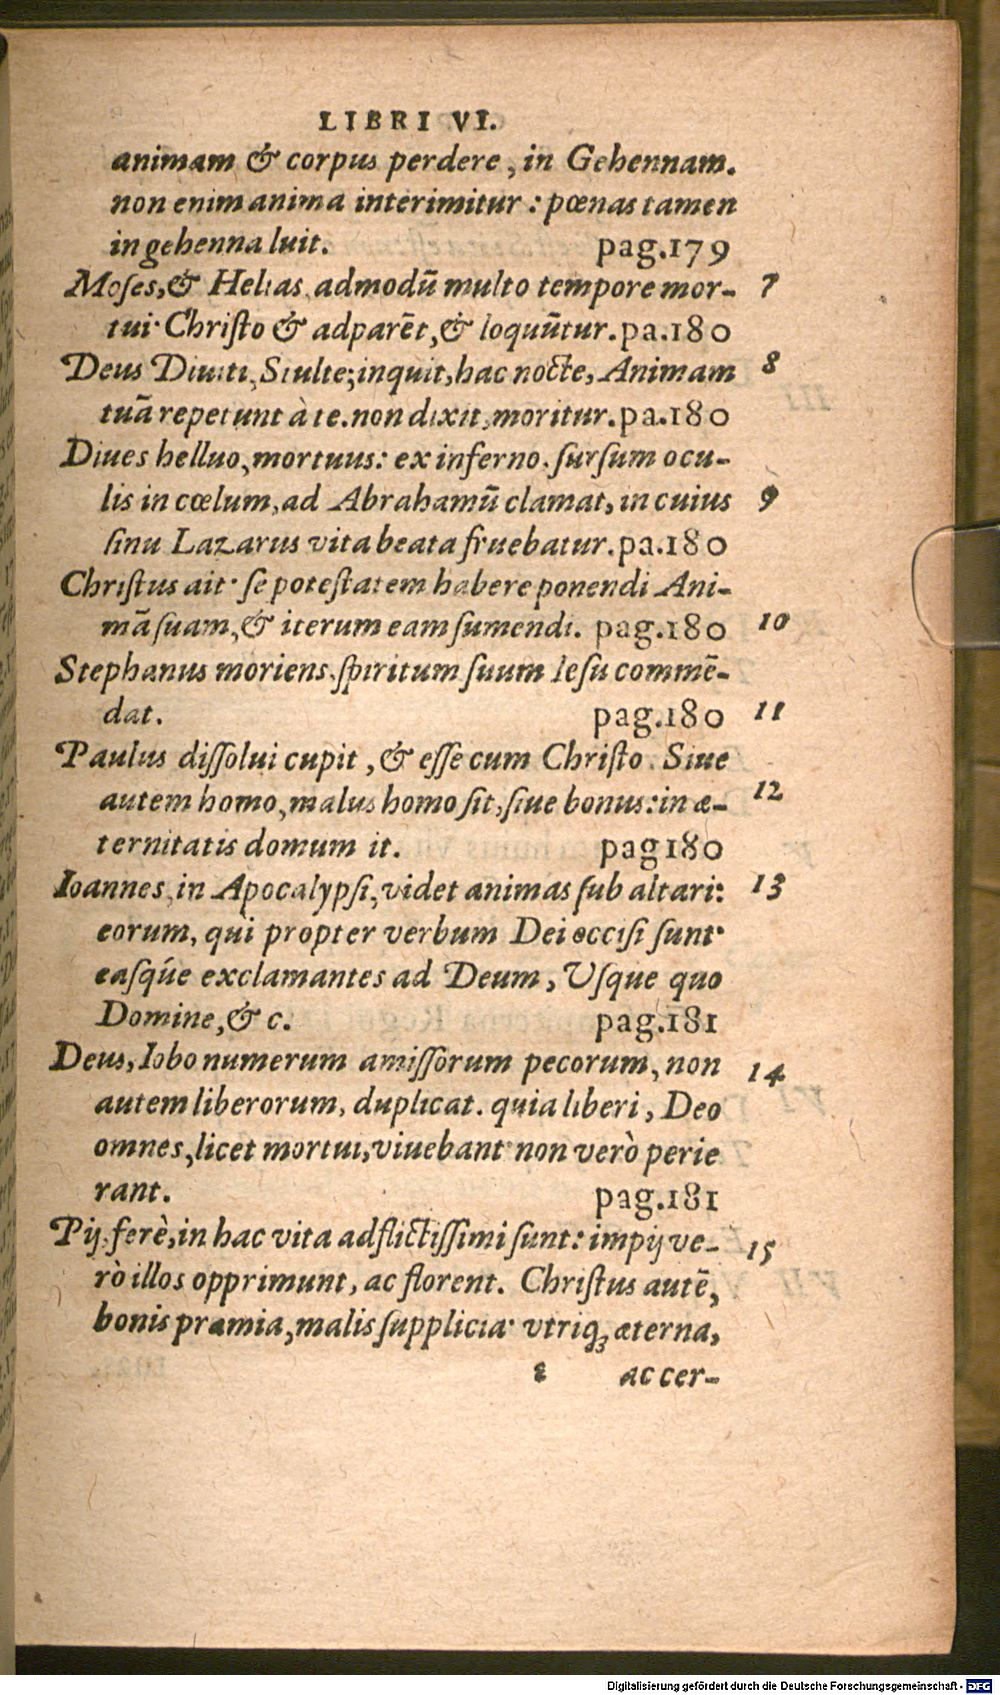 LIBRI VI.
animam & corpus perdere, in Gehennam.
non enim anima interimitur: pœnas tamen
in gehenna luit. pag.179
Moſes, & Helias admodū multo tempore mor- 7
tui· Chriſto & adparēt, & loquūtur. pa.180
Deus Diuiti, Stulte; inquit, hac nocte, Animam 8
tuā repetunt à te. non dixit, moritur. pa.180
Diues helluo, mortuus: ex inferno ſurſum ocu-
lis in cœlum, ad Abrahamū clamat, in cuius 9
ſinu Lazarus vita beata fruebatur. pa.180
Chriſtus ait· ſe poteſtatem habere ponendi Ani-
mā ſuam, & iterum eam ſumendi. pag.180 10
Stephanus moriens ſpiritum ſuum Ieſu commē-
dat. pag.180 11
Paulus diſſolui cupit, & eſſe cum Chriſto. Siue
autem homo, malus homo ſit, ſiue bonus: in æ- 12
ternitatis domum it. pag180
Ioannes, in Apocalypſi, videt animas ſub altari: 13
eorum, qui propter verbum Dei occiſi ſunt·
eaſq́ue exclamantes ad Deum, Uſque quo
Domine, & c. pag.181
Deus, Iobo numerum amiſſorum pecorum, non 14
autem liberorum, duplicat. quia liberi, Deo
omnes, licet mortui, viuebant· non verò perie
rant. pag.181
Pij ferè, in hac vita adflictiſſimi ſunt: impij ve- 15
rò illos opprimunt, ac florent. Chriſtus autē,
bonis præmia, malis ſupplicia· vtriq; æterna,
ε ac cer-
Digitalisierung gefördert durch die Deutsche Forschungsgemeinschaft - DFG